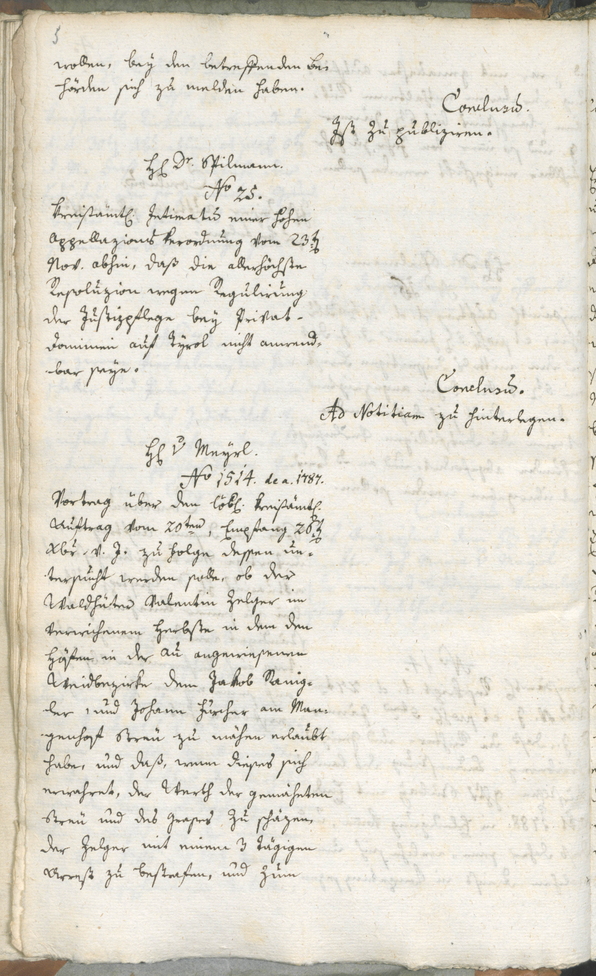 5
wollen, bey den betreffenden Be-
hörden sich zu melden haben.
Conclusũ.
Ist zu publiziren.
H. Dr. Spilmann.
No 25.
Kreisämtl. Intimatũ einer hohen
Appellazions Verordnung vom 23t
Nov. abhin, daß die allerhöchste
Resoluzion wegen Regulirung
der Justizpflege bey Privat-
Dominien auf Tyrol nicht anwend-
bar seye.
Conclusũ.
Ad Notitiam zu hinterlegen.
H. v. Meyrl.
No 1514. de a. 1787.
Vortrag über den löbl. Kreisämtl.
Auftrag vom 20ten, Empfang 28t
Xbr. v. J. zu folge dessen un-
tersucht werden solle, ob der
Waldhüter Valentin Zelger im
verwichenem Herbste in dem den
Höfen in der Au angewiesenen
Weidbezirke dem Jakob
und Johann am
Streu zu mähen erlaubt
habe, und daß, wenn dieses sich
erwahret, der Werth der gemähten
Streu und des Grases zu schäzen,
der Zelger mit einem 3 tägigen
Arrest zu bestrafen, und zum